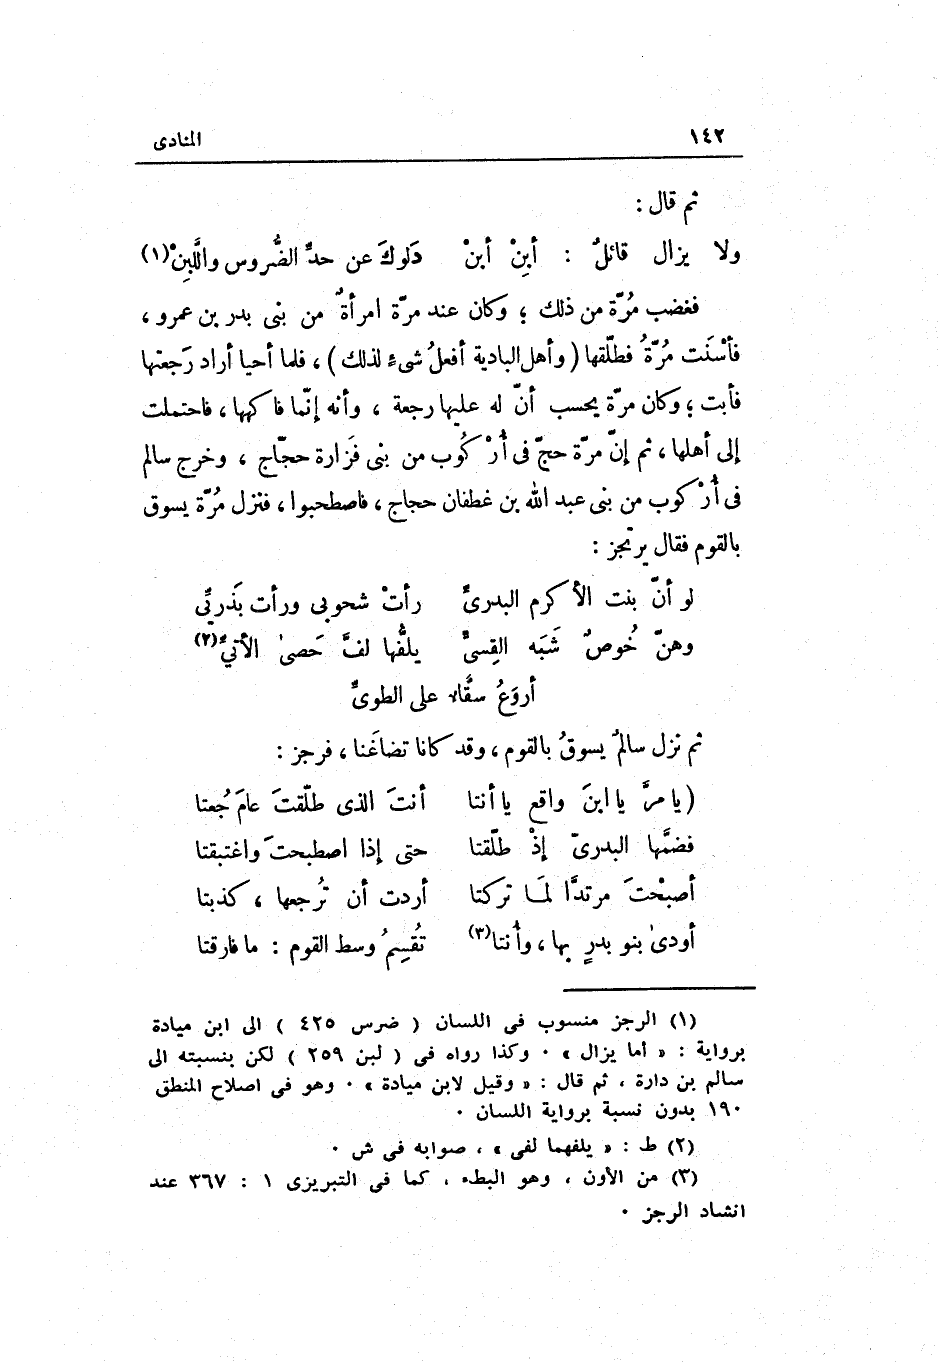 ١٤٢ المنادى
ثم قال :
ولا يزال قائلٌ : أبِنْ أبنْ دَلوكَ عن حدِّ الضُّروس واللَّبِنْ(١)
فغضب مُرّة من ذلك ؛ وكان عند مرّة امرأةٌ من بنى بدر بن عمرو ،
فأسْنَت مُرّةُ فطلّقها ( وأهل البادية أفعلُ شىءٍ لذلك ) ، فلما أحيا أراد رَجعتها
فأبت ؛ وكان مرّة يحسب أنّ له عليها رجعة ، وأنه إنّما فاكهها ، فاحتملت
إلى أهلها ، ثم إنّ مرّة حجّ فى أُرْكُوب من بنى فَزارة حجّاج ، وخرج سالم
فى أُرْكوب من بنى عبد الله بن غطفان حجاج ، فاصطحبوا ، فنزل مُرّة يسوق
بالقوم فقال يرتجز :
لو أنّ بنت الأكرم البدرىِّ رأتْ شحوبى ورأت بَذرِىِّ
وهنّ خُوصٌ شَبَه القِسىِّ يلفُّها لفَّ حَصىٰ الأتىِّ(٢)
أروَعُ سقّاء على الطوىِّ
ثم نزل سالمٌ يسوقُ بالقوم ، وقد كانا تضاغَنا ، فرجز :
(يا مرَّ يا ابنَ واقع يا أنتا أنتَ الذى طلّقتَ عامَ جُعتا
فضمَّها البدرىّ إذْ طلّقتا حتى إذا اصطبحتَ واغتبقتا
أصبحْتَ مرتدًّا لمَا تركتا أردت أن تُرجعها ، كذبتا
أودىٰ بنو بدرٍ بها ، وأنتا(٣) تُقسِمُ وسط القوم : ما فارقتا
(١) الرجز منسوب فى اللسان ( ضرس ٤٢٥ ) الى ابن ميادة
برواية : « أما يزال » ٠ وكذا رواه فى ( لبن ٢٥٩ ) لكن بنسبته الى
سالم بن دارة ، ثم قال : « وقيل لابن ميادة » ٠ وهو فى اصلاح المنطق
١٩٠ بدون نسبة برواية اللسان ٠
(٢) ط : « يلفهما لفى » ، صوابه فى ش ٠
(٣) من الأون ، وهو البطء ، كما فى التبريزى ١ : ٣٦٧ عند
انشاد الرجز ٠